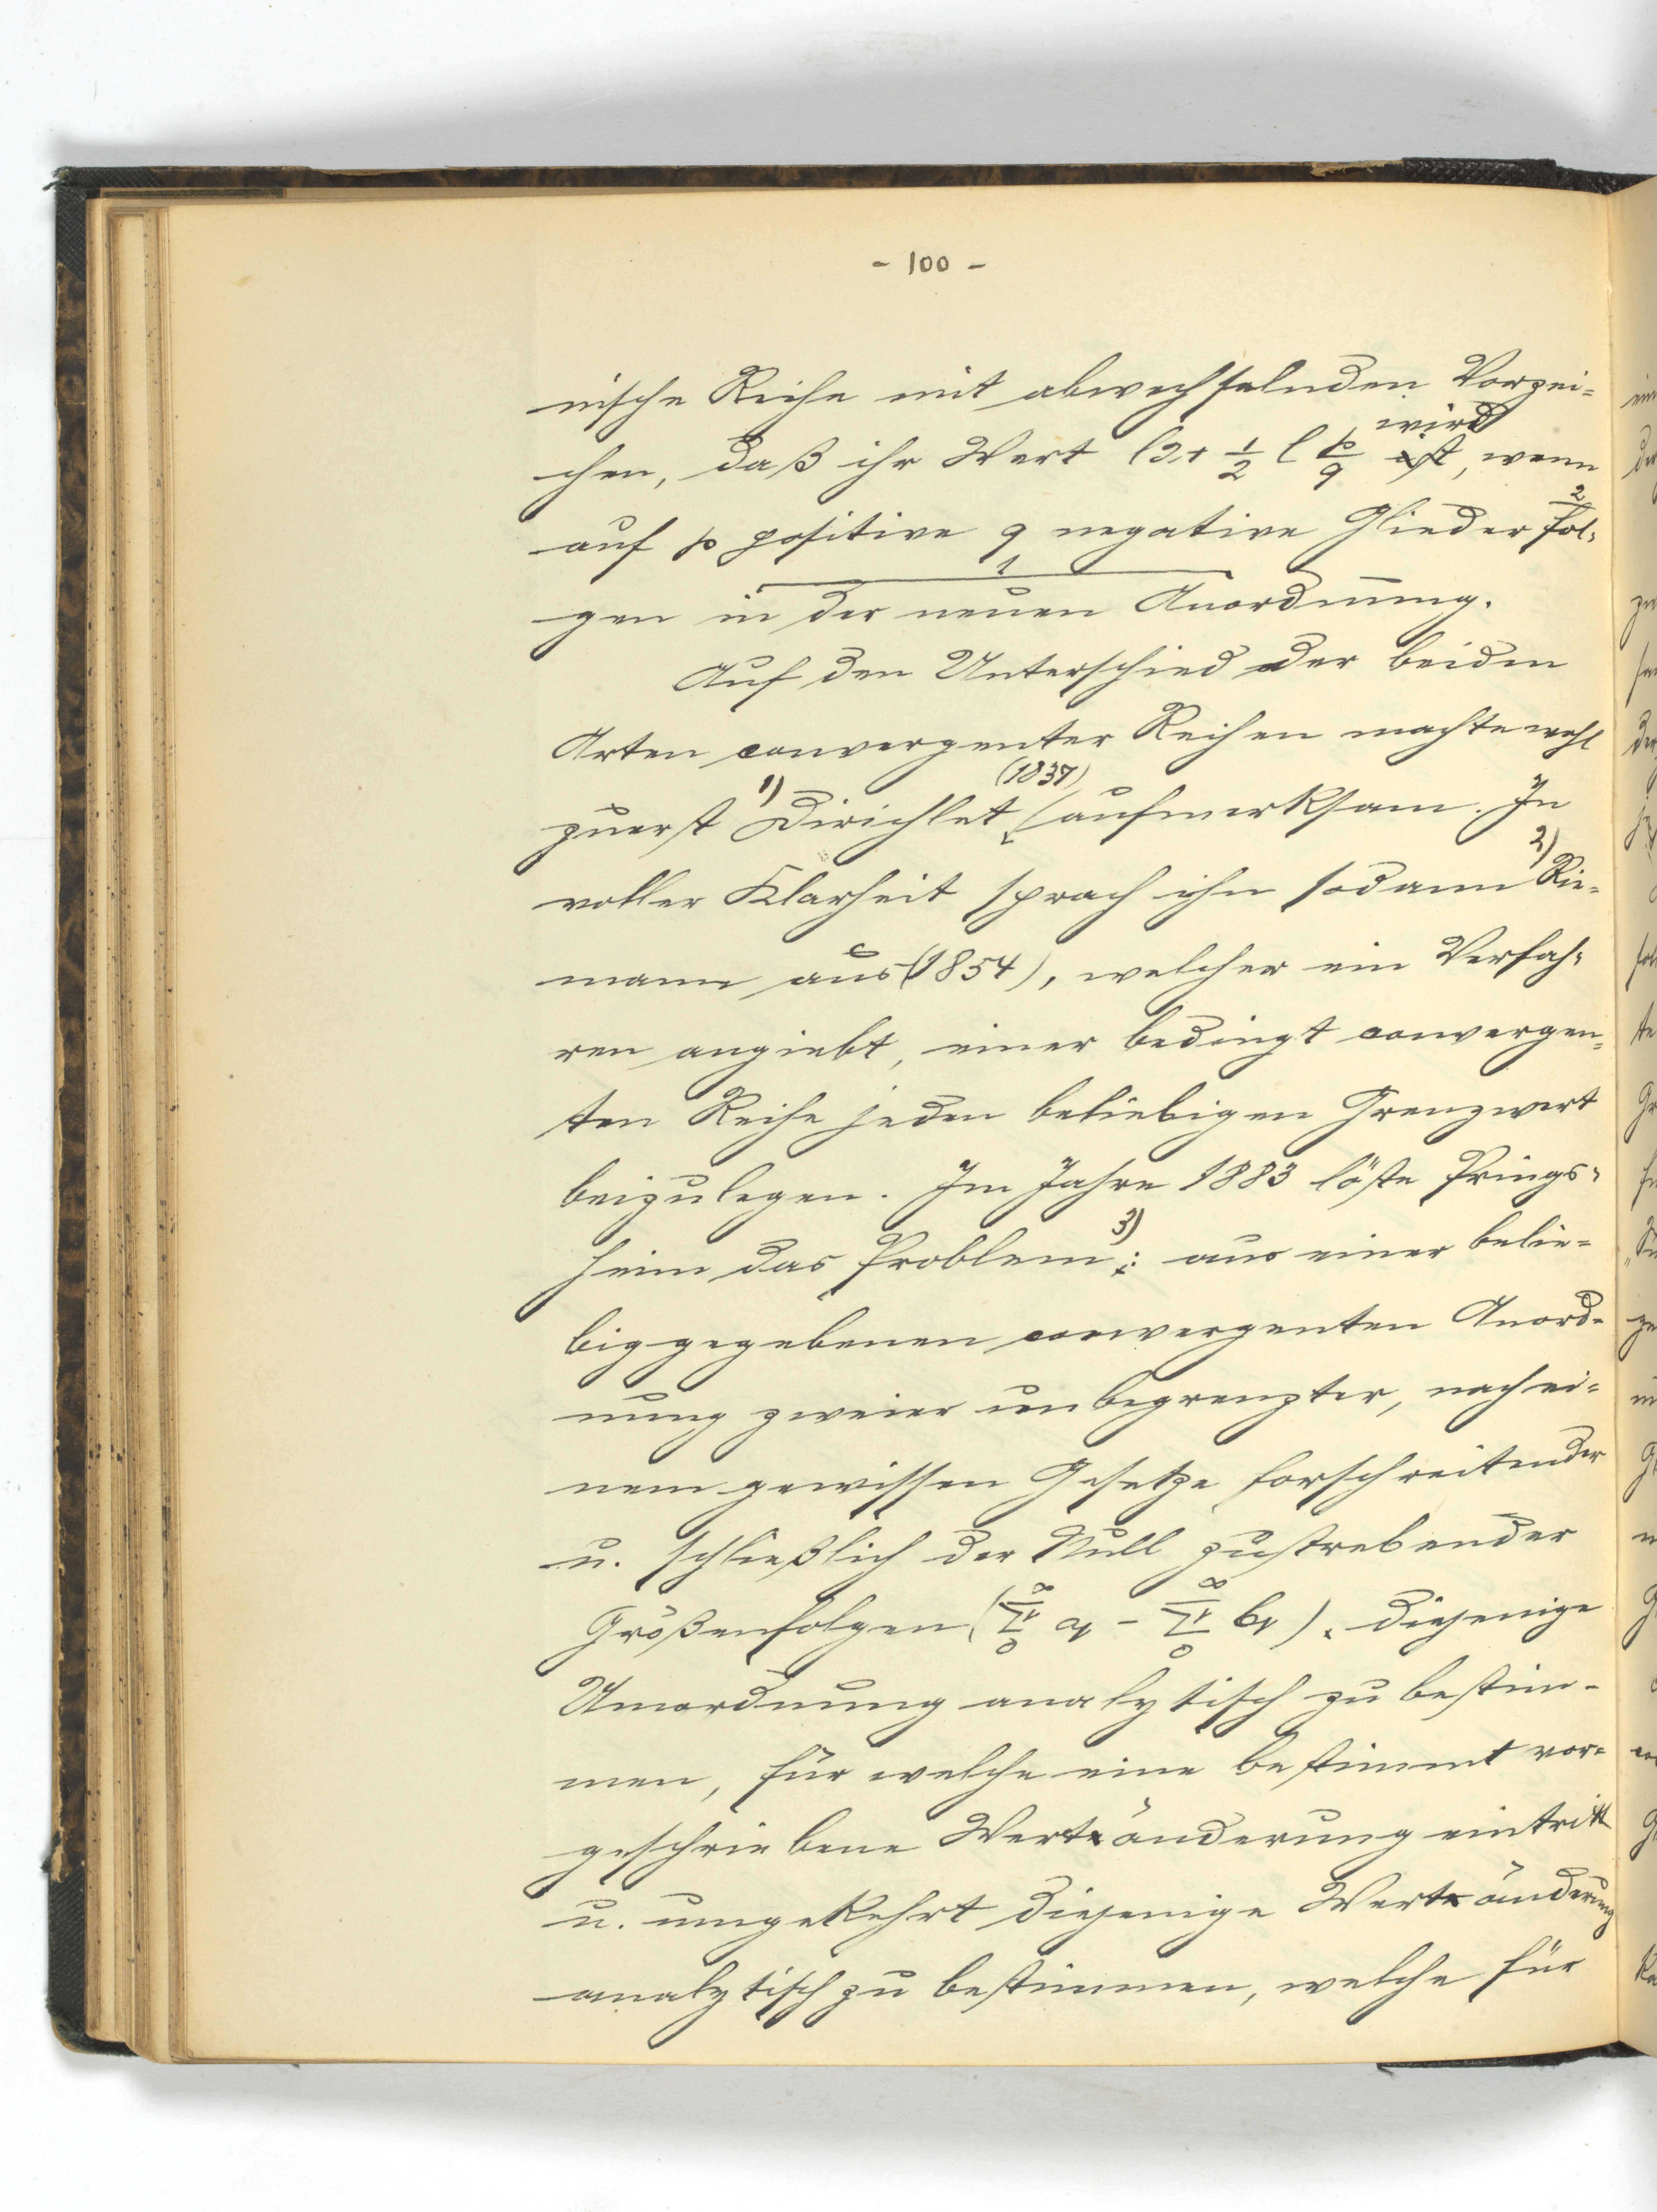 - 100 -
nische Reihe mit abwechselnden Vorzei=
wird
chen, daß ihr Wert l2 + 1/2 l p/q ist, wenn
2
auf p positive q negative Glieder fol=
1
gen in der neuen Anordnung.
Auf den Unterschied der beiden
Arten convergenter Reihen machte wohl
1) (1837)
zuerst Dirichlet aufmerksam. In
2)
voller Klarheit sprach ihn sodann Rie=
mann aus (1854), welcher ein Verfah=
ren angiebt, einer bedingt convergen=
ten Reihe jeden beliebigen Grenzwert
beizulegen. Im Jahre 1883 löste Prings=
3)
heim das Problem: aus einer belie=
big gegebenen convergenten Anord=
nung zweier unbegrenzter, nach ei=
nem gewissen Gesetze forschreitender
u. schließlich der Null zustrebender
Größenfolgen (∞Σ0 aν - ∞Σ0 bν). diejenige
Umordnung analytisch zu bestim=
men, für welche eine bestimmt vor=
geschriebene Wertänderung eintritt
u. umgekehrt diejenige Wertänderung
analytisch zu bestimmen, welche für